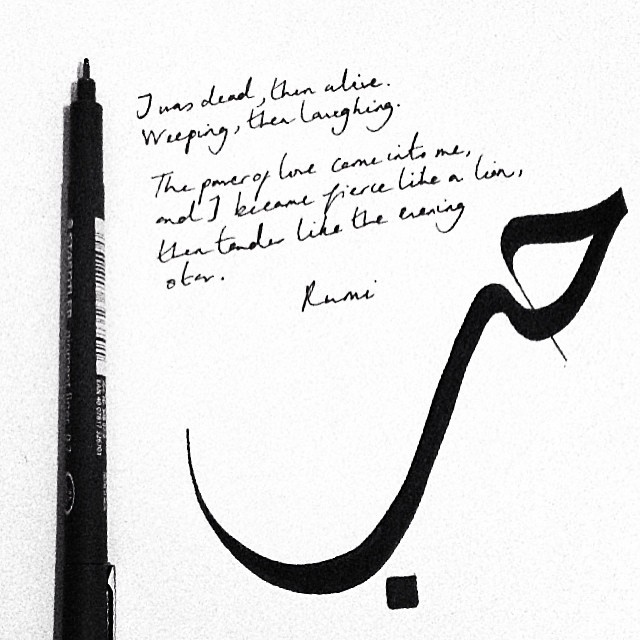 I was dead, then alive.
Weeping, then laughing.
The power of love came into me,
and I became fierce like a lion,
then tender like the evening
star.
Rumi
حب
STAEDTLER